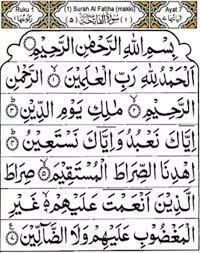 Ruku 1 (1) Surah Al Fatiha (makki) Ayat 7
رُكُوْعُهَا ١ (٥) سُوْرَةُ الْفَاتِحَةِ (١) اٰيَاتُهَا ٧
بِسْمِ اللهِ الرَّحْمٰنِ الرَّحِيْمِ
اَلْحَمْدُ لِلّٰهِ رَبِّ الْعٰلَمِيْنَ ۝١ الرَّحْمٰنِ
الرَّحِيْمِ ۝٢ مٰلِكِ يَوْمِ الدِّيْنِ ۝٣
اِيَّاكَ نَعْبُدُ وَاِيَّاكَ نَسْتَعِيْنُ ۝٤
اِهْدِنَا الصِّرَاطَ الْمُسْتَقِيْمَ ۝٥ صِرَاطَ
الَّذِيْنَ اَنْعَمْتَ عَلَيْهِمْ ۝٦ غَيْرِ
الْمَغْضُوْبِ عَلَيْهِمْ وَلَا الضَّآلِّيْنَ ۝٧